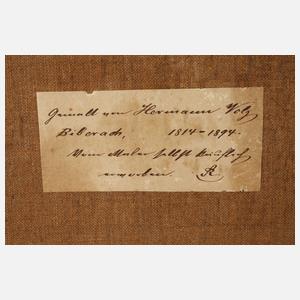 Gemalt von Hermann Volz
Biberach, 1814–1894.
Vom Maler selbst käuflich
erworben. R